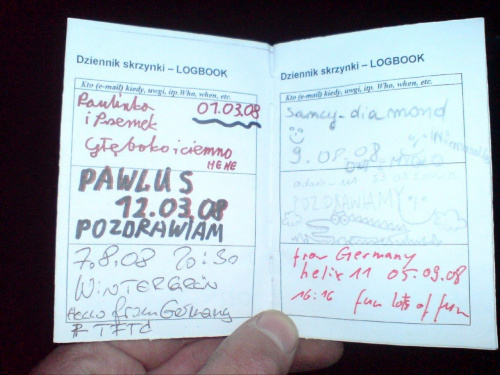 Dziennik skrzynki – LOGBOOK
Kto (e-mail) kiedy, uwagi, itp. Who, when, etc.
Paulinka 01.03.08
i Przemek
Głęboko i ciemno
HEHE
PAWLUS
12.03.08
POZDRAWIAM
7.8.08 20:30
WiNTERGRÜN
Hello from Germany
TFTC
Dziennik skrzynki – LOGBOOK
Kto (e-mail) kiedy, uwagi, itp. Who, when, etc.
samcy-diamond
9.08.08
POZDRAWIAMY
from Germany
helix 11 05.09.08
16:16 fun lots of fun